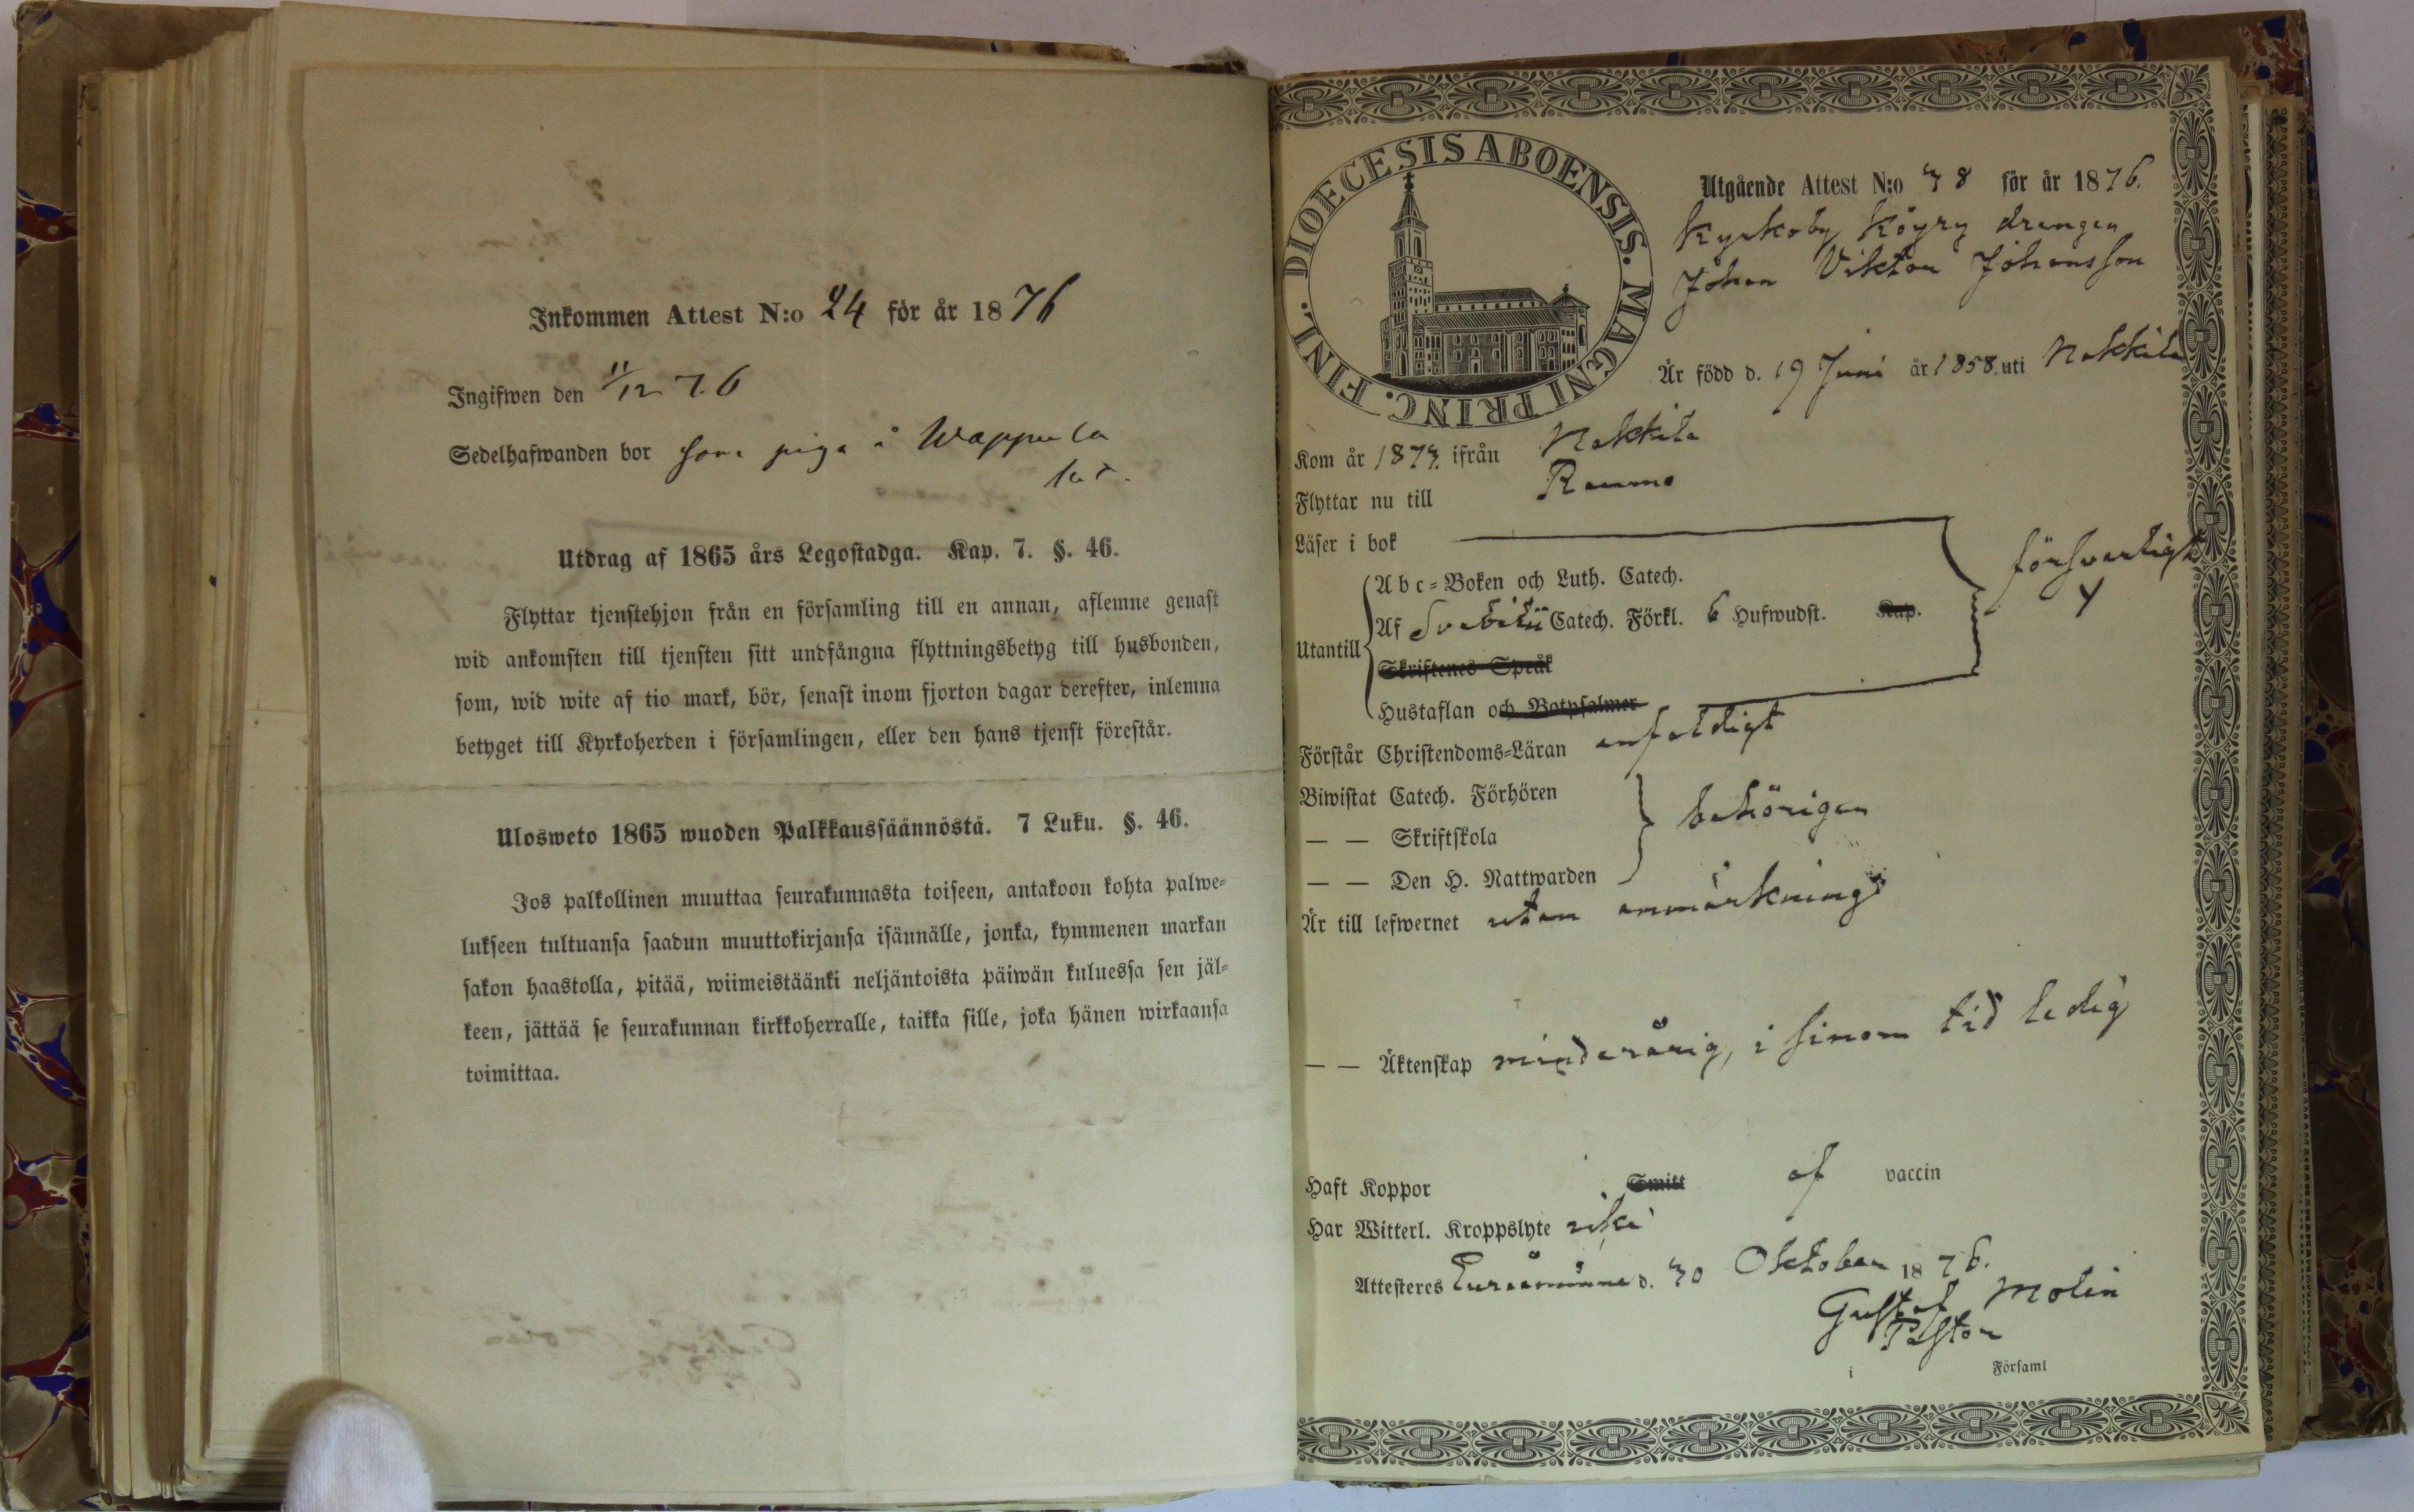 Inkommen Attest N:o 24 för år 1876
Ingifwen den 11/12 76
Sedelhafwanden bor som piga å Wappula
Utdrag af 1865 års Legostadga. Kap. 7. §. 46.
Flyttar tjenstehjon från en församling till en annan, aflemne genast
wid ankomsten till tjensten sitt undfångna flyttningsbetyg till husbonden,
som, wid wite af tio mark, bör, senast inom fjorton dagar derefter, inlemna
betyget till Kyrkoherden i församlingen, eller den hans tjenst förestår.
Ulosweto 1865 wuoden Palkkaussäännöstä. 7 Luku. §. 46.
Jos palkollinen muuttaa seurakunnasta toiseen, antakoon kohta palwe=
lukseen tultuansa saadun muuttokirjansa isännälle, jonka, kymmenen markan
sakon haastolla, pitää, wiimeistäänki neljäntoista päiwän kuluessa sen jäl=
keen, jättää se seurakunnan kirkkoherralle, taikka sille, joka hänen wirkaansa
toimittaa.
DIOECESIS ABOENSIS. MAGNI PRINC. FINL.
Utgående Attest N:o 38 för år 1876.
Kyrkoby Köyry drengen
Johan Viktor Johansson
Är född d. 19 Juni år 1858. uti Nakkila
Kom år 1873. ifrån Nakkila
Flyttar nu till Raumo
Läser i bok
försvarligt
Abc=Boken och Luth. Catech.
Utantill
Af Svebilii Catech. Förkl. 6 Hufwudst. Kap.
Skriftenes Språk
Hustaflan och Botpsalmer
Förstår Christendoms=Läran enfaldigt
Biwistat Catech. Förhören
— — Skriftskola behörigen
— — Den H. Nattwarden
Är till lefwernet utan anmärkning
— — Äktenskap minderårig, i sinom tid ledig
Haft Koppor Smitt af vaccin
Har Witterl. Kroppslyte icke
Attesteres Euraåminne d. 30 Oktober 1876.
Gustaf Molin
Pastor
i Församl